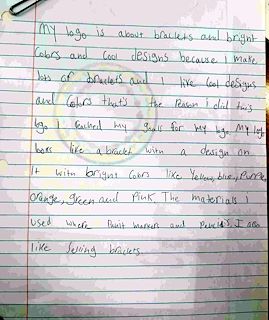 My logo is about braclets and bright
colors and cool designs because I make
lots of braclets and I like cool designs
and colors that's the reason I did this
logo I reached my goals for my logo My logo
looks like a braclet with a design on
it with bright colors like yellow, blue, Purple
orange, green and Pink. The materials I
used where Paint markers and Pencils. I also
like selling braclets.